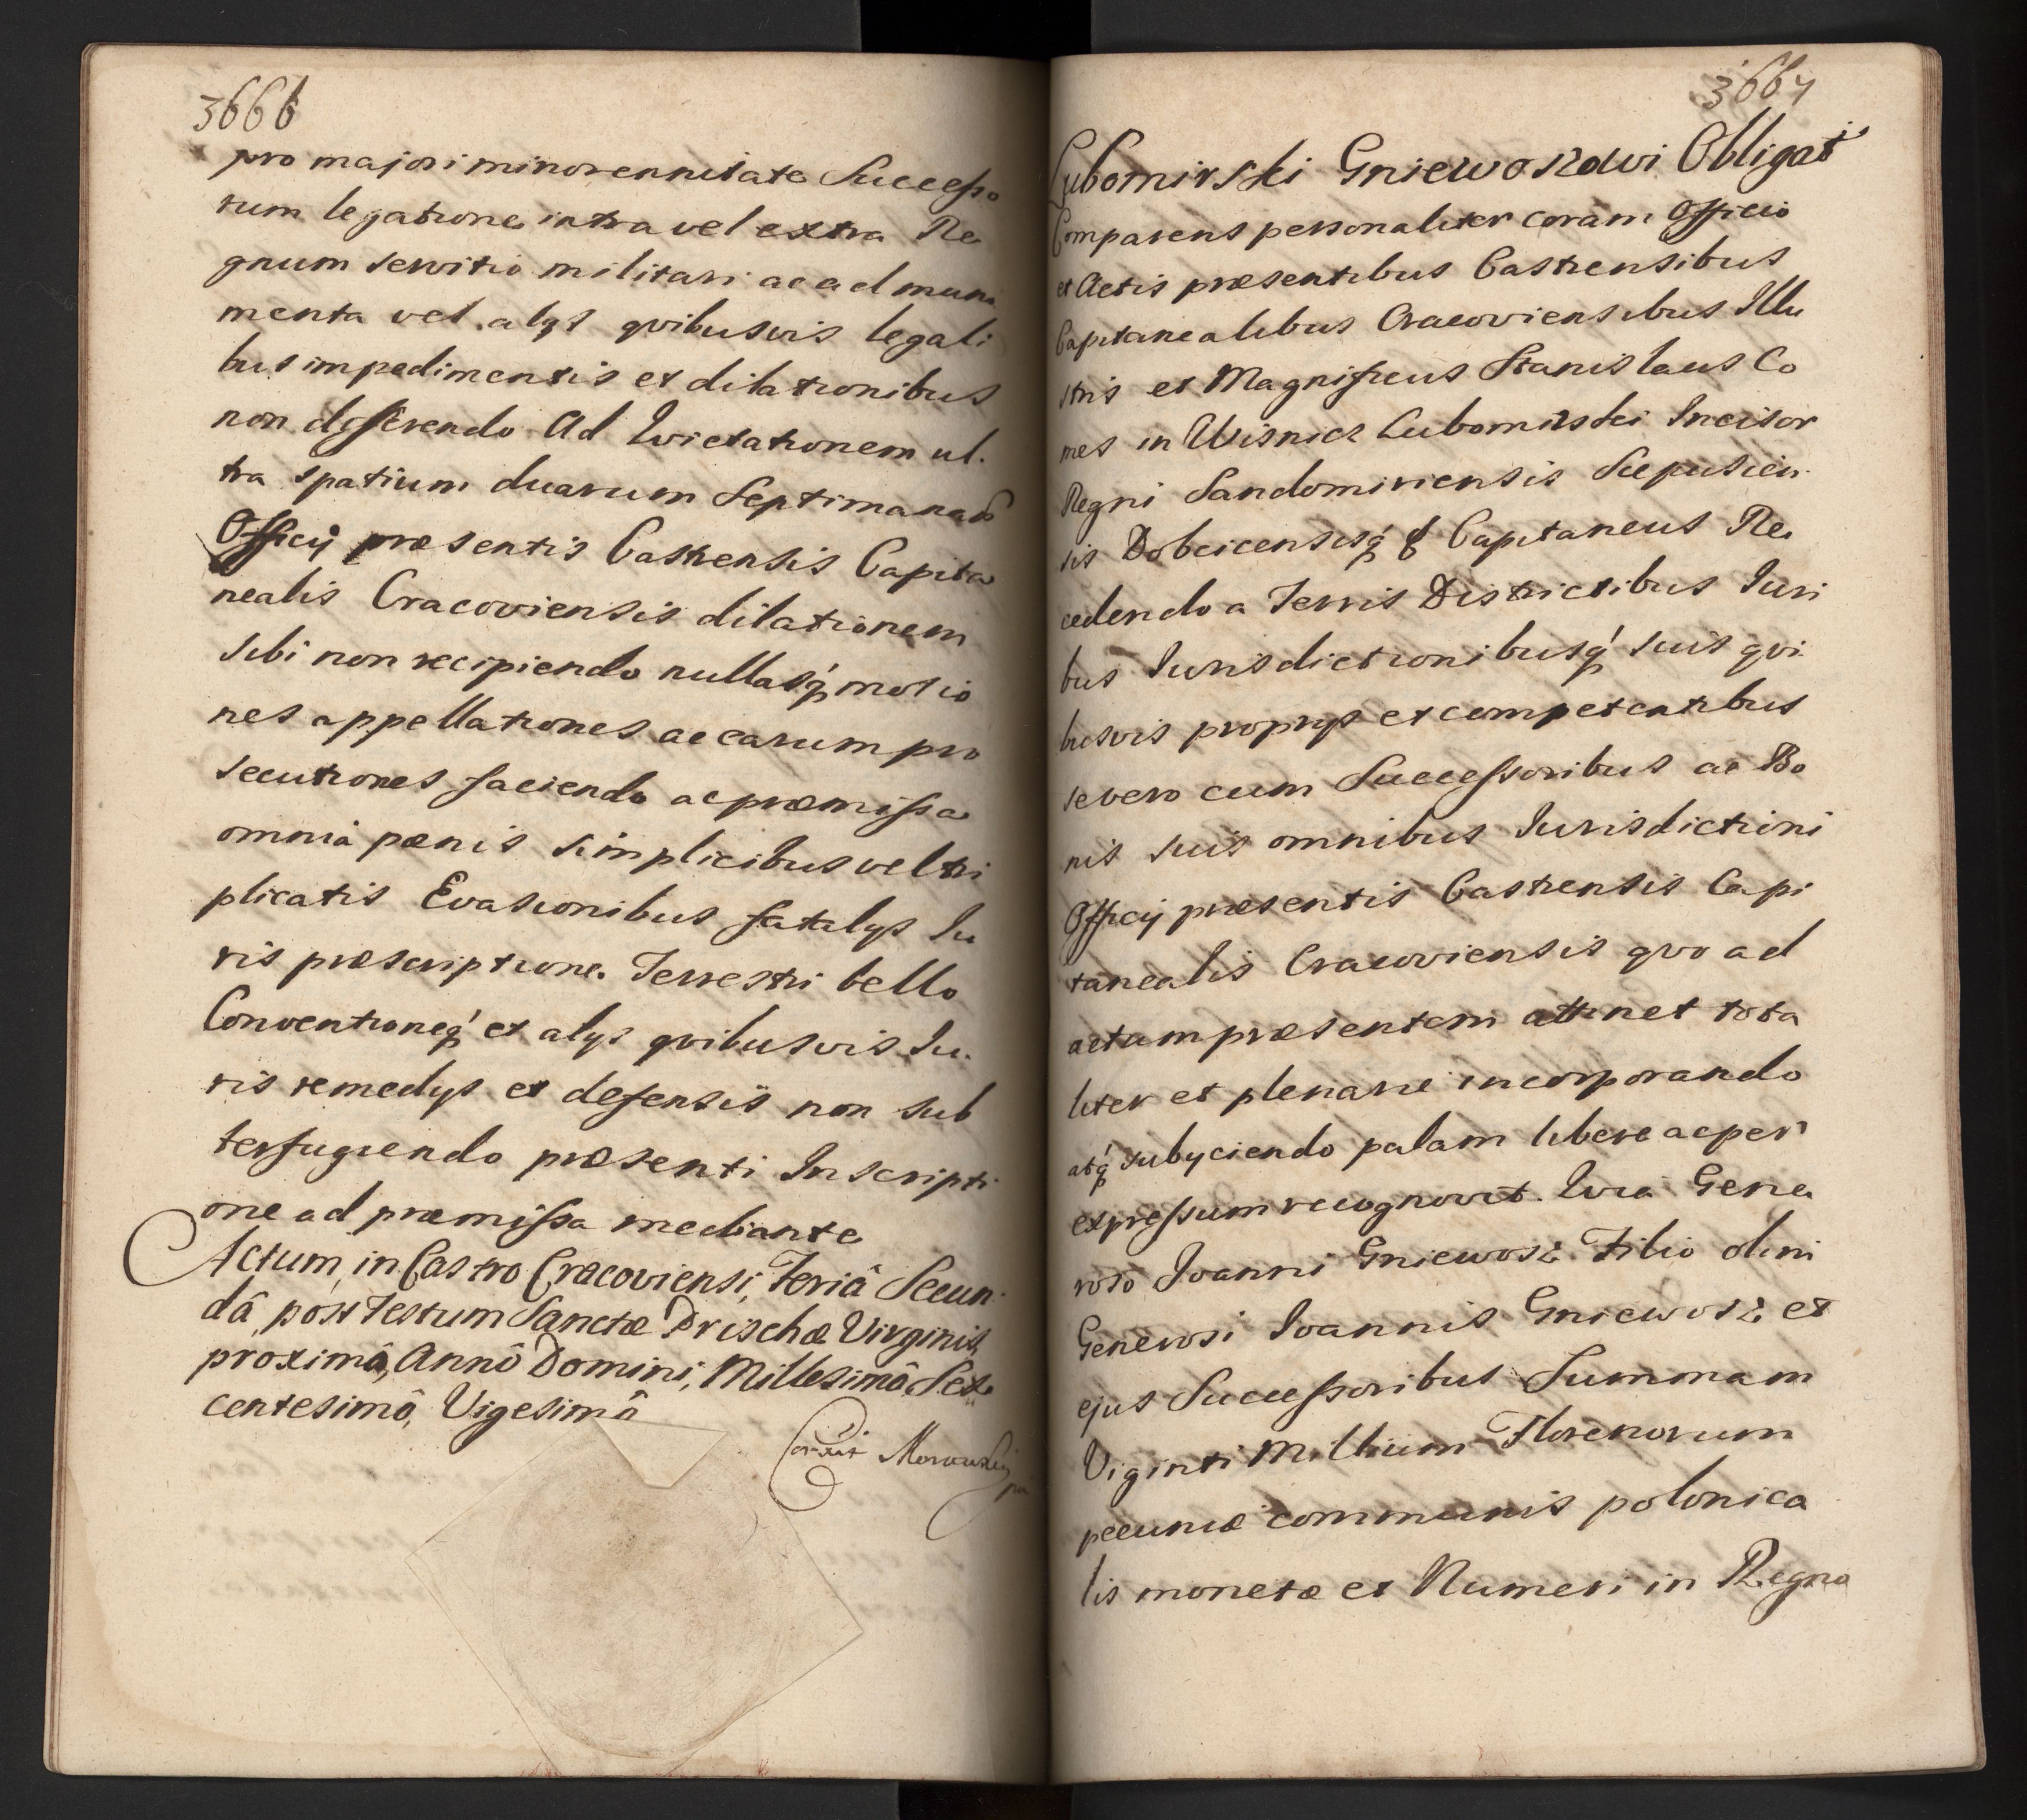 3666
pro majori minorennitate Successo
rum legatione intra vel extra Re
gnum servitio militari ac ad muni
menta vel alijs qvibusvis legali
bus impedimentis et dilationibus
non differendo Ad Evictationem ul.
tra spatium duarum Septimanarū
Officij præsentis Castrensis Capita
nealis Cracoviensis dilationem
sibi non recipiendo nullasq́ motio
nes appellationes ac earum pro
secutiones faciendo ac præmissa
omnia pœnis simplicibus vel tri
plicatis Evasionibus fatalijs Iu
ris præscriptione Terrestri bello
Conventioneq́ et alijs qvibusvis Iu.
ris remedijs et defensis non sub
terfugiendo præsenti Inscripti
one ad præmissa mediante
Actum, in Castro Cracoviensi, Feriâ Secun
dâ, post Festum Sanctæ Prischæ Virginis,
proximâ, Annô Domini, Millesimô Sex
centesimô, Vigesimô
3667
Lubomirski Gniewoszowi Obligat
Comparens personaliter coram Officio
et Actis præsentibus Castrensibus
Capitanealibus Cracoviensibus Illu
stris et Magnificus Stanislaus Co
mes in Wisnicz Lubomirski Incisor
Regni Sandomiriensis Scepusien
sis Dobcicensisq́ & Capitaneus Re
cedendo a Terris Districtibus Iuri
bus Iurisdictionibusq́ suis qvi
busvis proprijs et competentibus
se vero cum Successoribus ac Bo
nis suis omnibus Iurisdictioni
Officij præsentis Castrensis Capi
tanealis Cracoviensis qvo ad
actum præsentem attinet tota
liter et plenarie incorporando
atq́ subijciendo palam libere ac per
expressum recognovit. Qvia Gene
roso Ioanni Gniewosz Filio olim
Generosi Ioannis Gniewosz et
ejus Successoribus Summam
Viginti Millium Florenorum
pecuniæ communis polonica
lis monetæ et Numeri in Regno